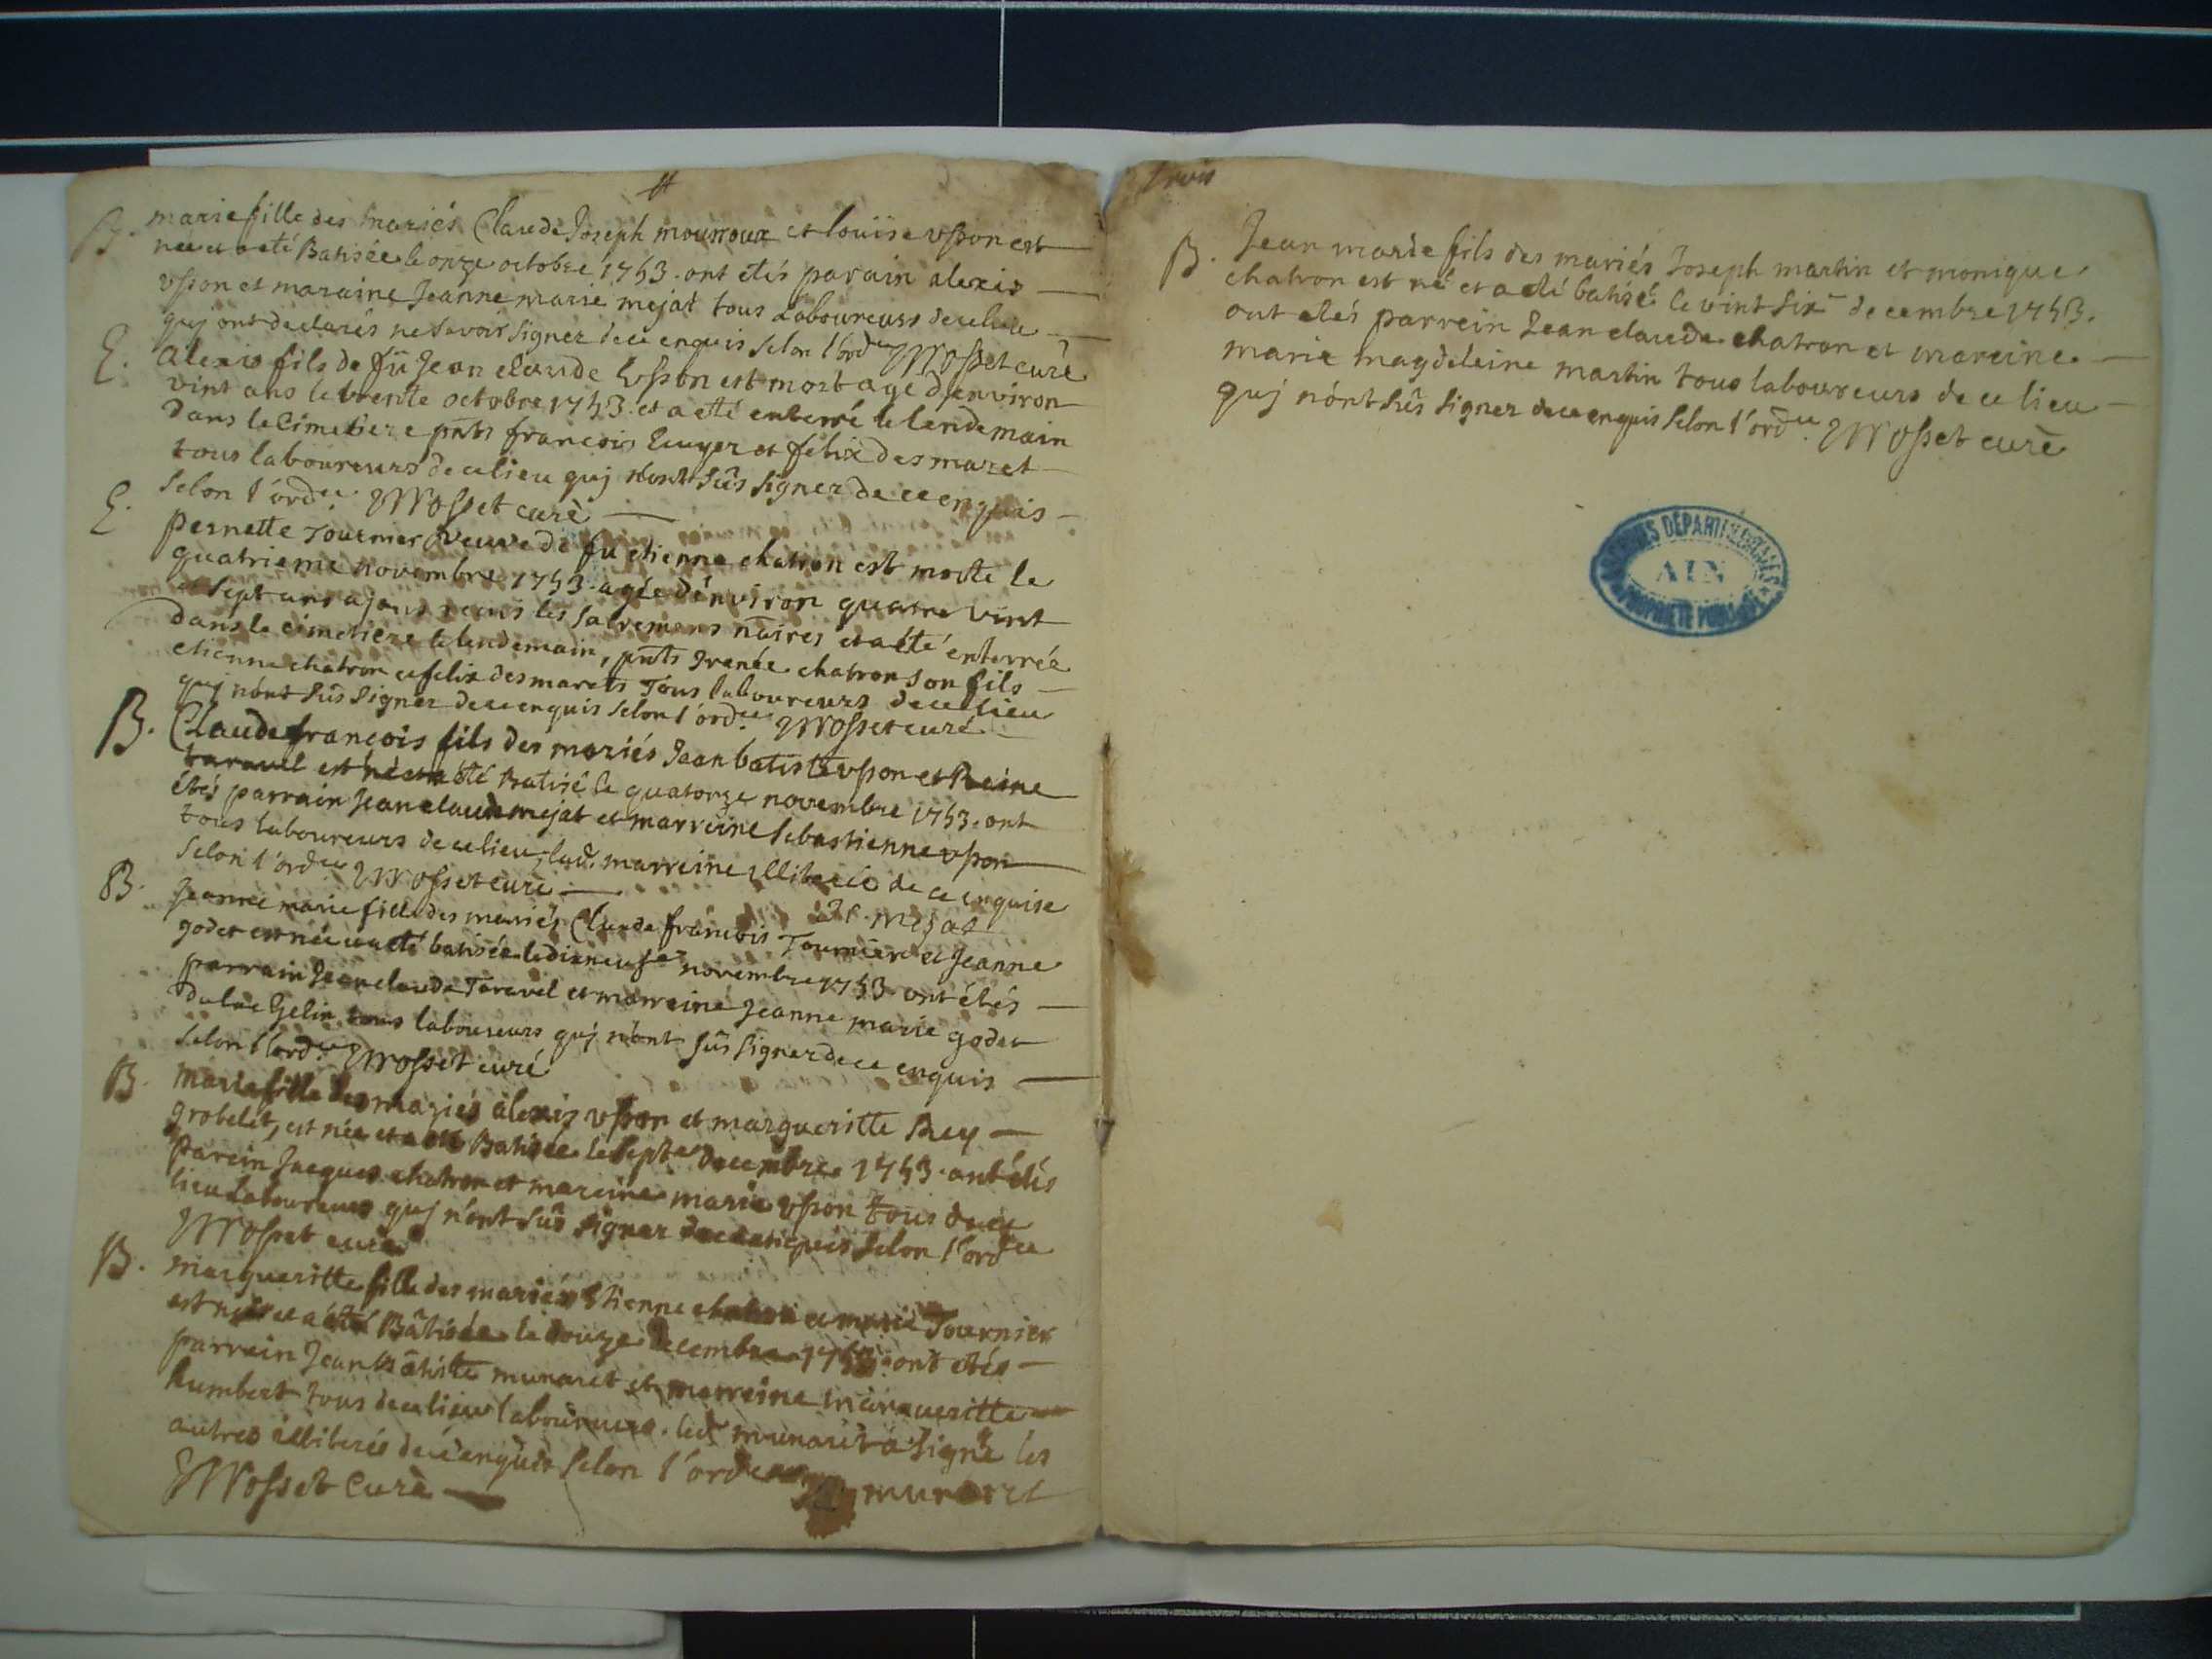 B. marie fille des mariés Claude Joseph mourroux et louise vsson est
née et a eté Batisée le onze octobre 1753. ont étés parain alexis
vsson et maraine Jeanne marie mejat tous Laboureurs de ce lieu
quj ont declarés ne savoir signer de ce enquis selon l'ord.ce Mosset curé
E. alexis fils de fû Jean claude vsson est mort agé d'environ
vint ans le trente octobre 1753. et a eté enterré le lendemain
dans le Cimetiere pnts françois Ecuyer et felix desmaret
tous laboureurs de ce lieu quj n'ont sûs signer de ce enquis
selon l'ord.ce Mosset curè
E. pernette Tournier veuve de fu etienne chatron est morte le
quatrieme novembre 1753. agée d'environ quatre vint
et sept ans ajant recus les sacremens n̄aires et a été enterrée
dans le cimetiere le lendemain, pnts Irenée chatron son fils
etienne chatron et felix desmarets Tous laboureurs de ce lieu
quj n'ont sûs signer de ce enquis selon l'ord.ce Mosset curé
B. Claude françois fils des mariés Jean batiste vsson et Reine
taravel est né et a été Batisé le quatorze novembre 1753. ont
étés parrain Jean claude mejat et marreine sebastienne vsson
tous laboureurs de ce lieu, lad. marreine illiterée de ce enquise
selon l'ord.ce Mosset curè
J C mejat
B. Jeanne marie fille des mariés Claude francois Tournier et Jeanne
godet est née et a eté batisée le dixneuf.e novembre 1753. ont étés
parrain Jean claude Taravel et marreine Jeanne marie godet
du lac Gelin tous laboureurs quj n'ont sûs signer de ce enquis
selon l'ord.ce Mosset curé
B. marie fille des mariés alexis vsson et margueritte Rey
grobelet, est née et a été Batisée le sept.e decembre 1753. ont étés
parein Jacques chatron et mareine marie vsson tous de ce
lieu Laboureurs quj n'ont sûs signer de ce enquis selon l'ord.ce
Mosset curè
B. margueritte fille des mariés Etienne chatron et marie Tournier
est née et a été Bâtisée le douze decembre 1753. ont étés
parrein Jean Bâtiste munaret et marreine margueritte
humbert tous de ce lieu laboureurs. led. munaret a signé les
autres illiterés de cè enquis selon l'ord.ce munaret
Mosset Curè
trois
B. Jean marie fils des mariés Joseph martin et monique
chatron est né et a eté batisé le vint six.e decembre 1753.
ont etés parrein Jean claude chatron et mareine
marie magdeleine martin tous laboureurs de ce lieu
quj n'ont sûs signer de ce enquis selon l'ord.ce Mosset curè
ARCHIVES DÉPARTEMENTALES
AIN
PROPRIÉTÉ PUBLIQUE